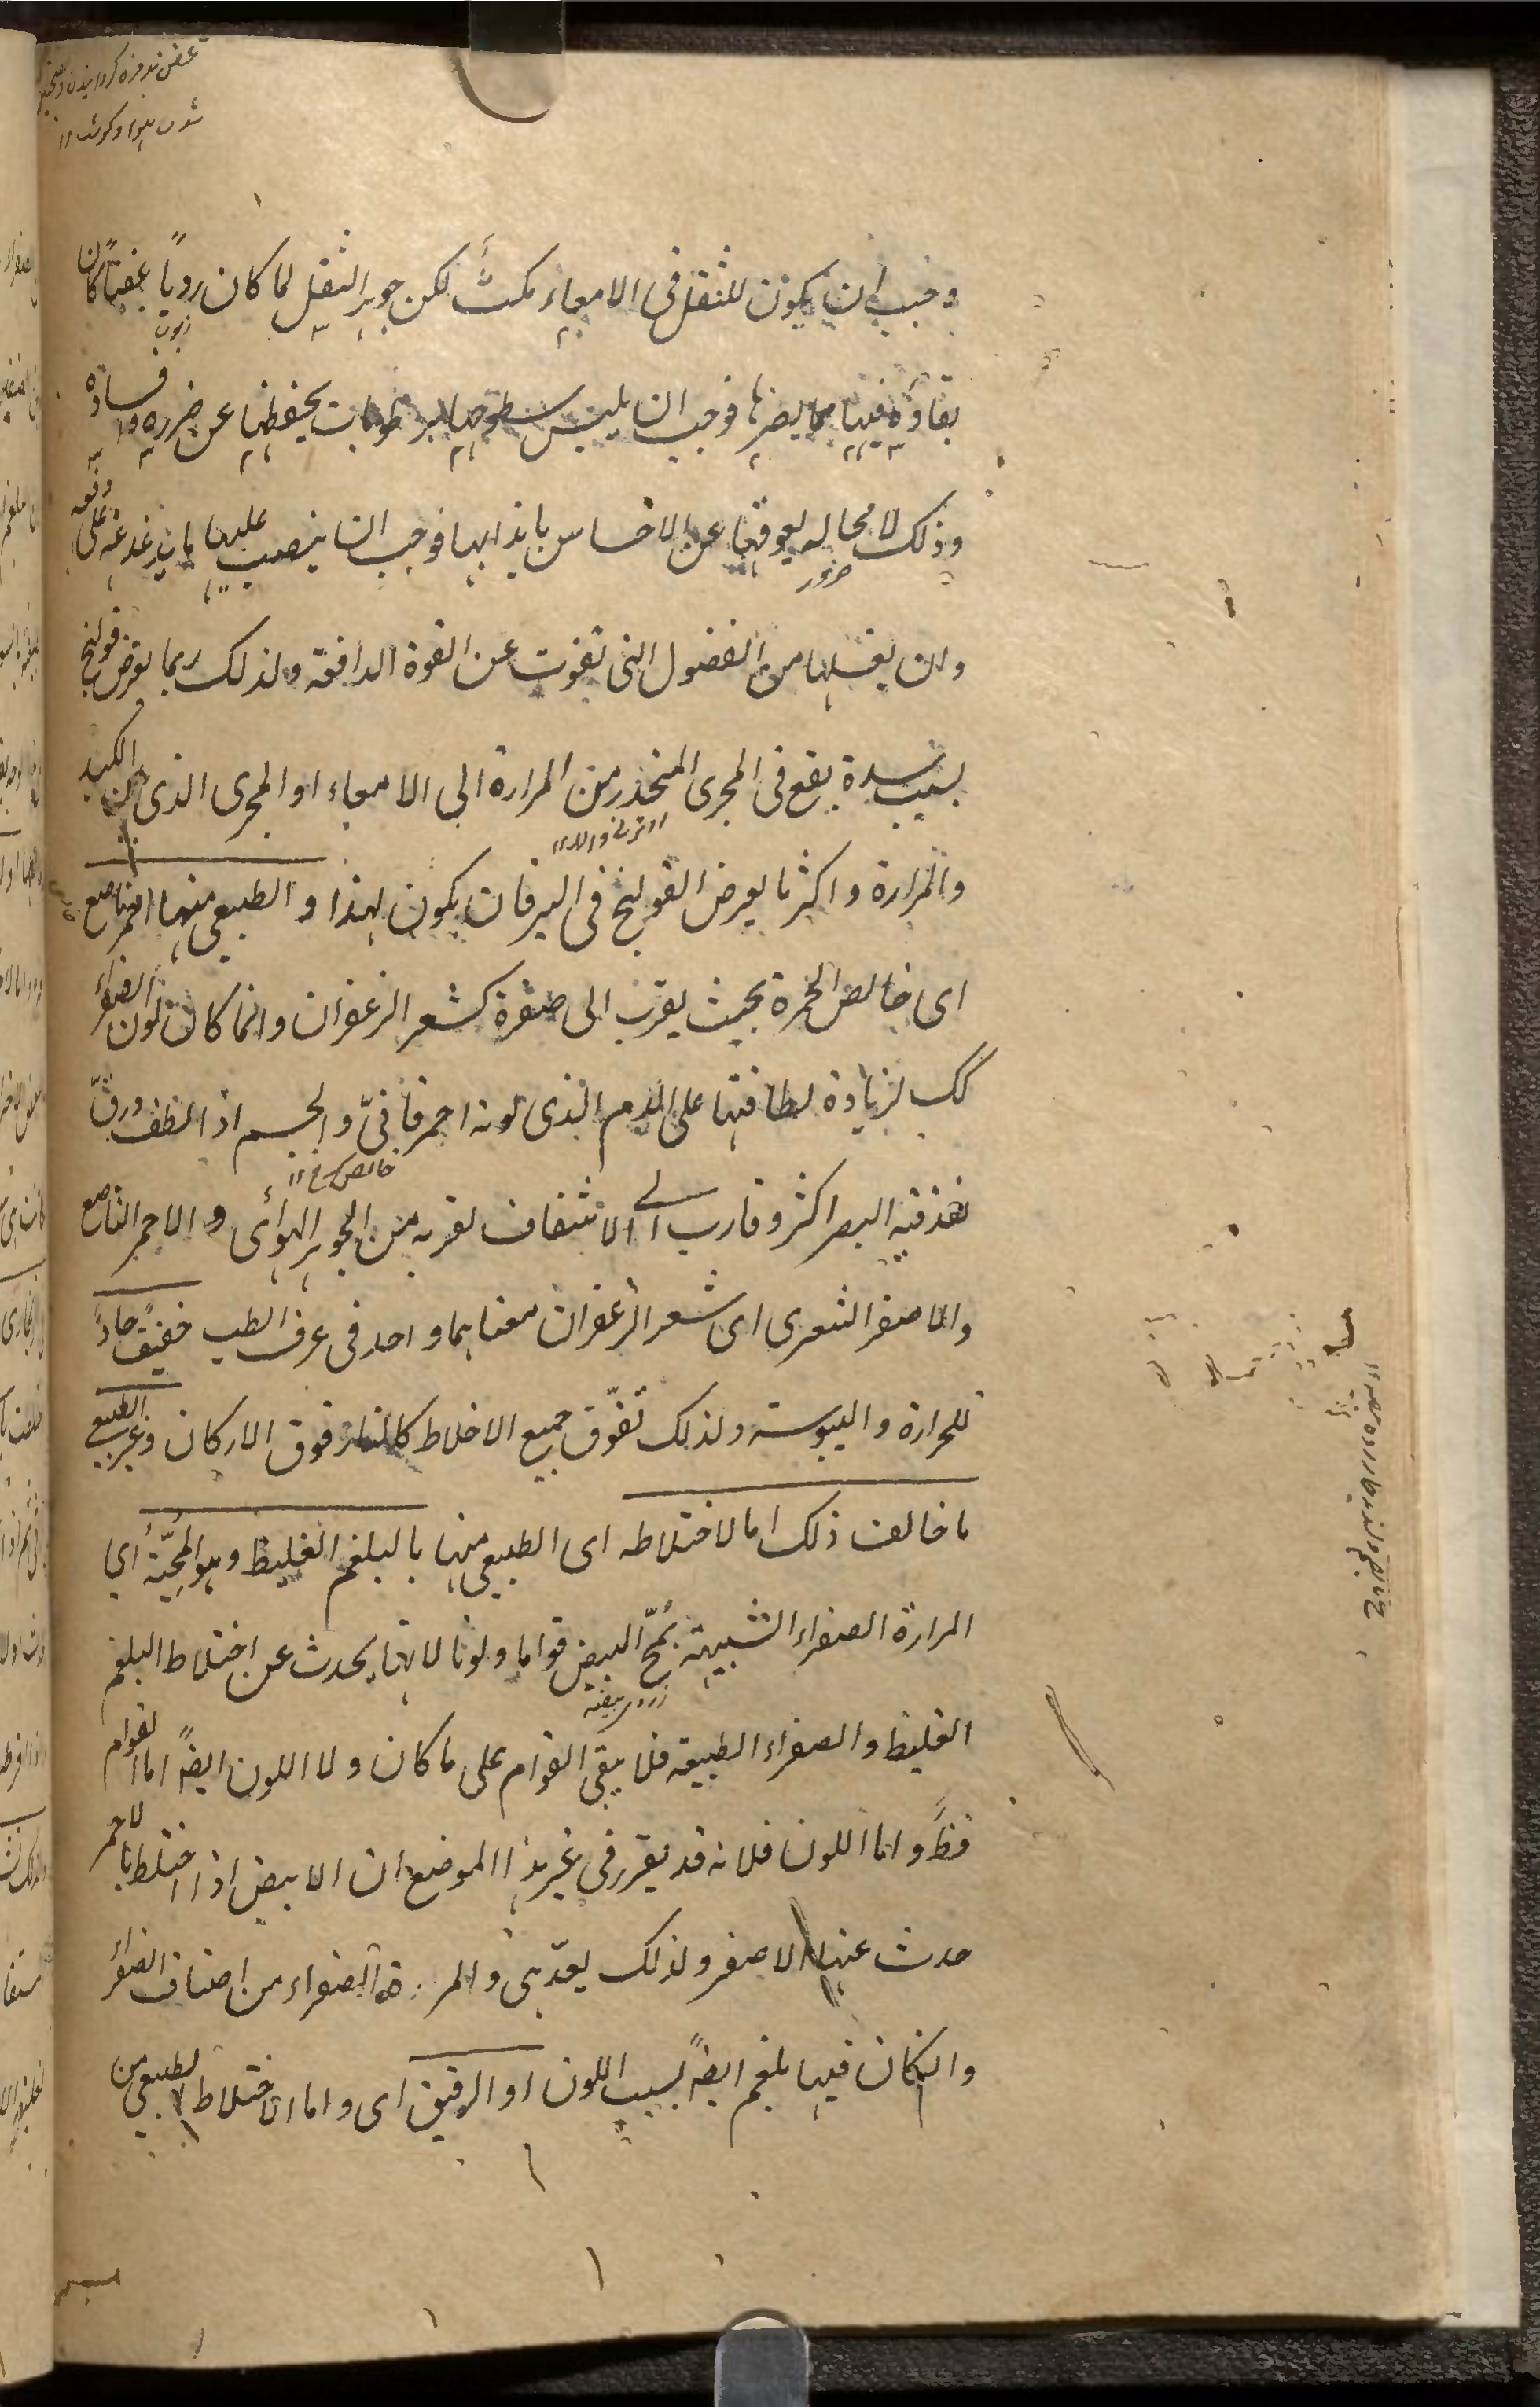 وجب ان يكون للثفل فى الامعاء مكثٌ لكن جوهر الثفل لما كان رديًا عفنًا كان
بقاؤه فيها مما يضرها فوجب ان يلبس سطوحها برطوبات يحفظها عن ضرره وفساده
وذلك لا محاله يعوقها عن الاحساس بايذائها فوجب ان ينصب عليها ما يدغدغه على دفعه
وان يغسلها من الفضول التى تفوت عن القوة الدافعة ولذلك ربما يعرض قولنج
بسبب سدة يقع فى المجرى المنحدر من المرارة الى الامعاء او المجرى الذى بين الكبد
والمرارة واكثر ما يعرض القولنج فى اليرقان يكون لهذا والطبيعى منها احمر ناصع
اى خالص الحمرة بحيث يقرب الى صفرة كشعر الزعفران وانما كان لون الصفراء
كك لزيادة لطافتها على الدم الذى لونه احمر قانىّ والجسم اذا لطف ورقّ
نفذ فيه البصر اكثر وقارب الى الاشفاف لقربه من الجوهر الهوائى والاحمر الناصع
والاصفر الشعرى اى شعر الزعفران معناهما واحد فى عرف الطب خفيف حادً
للحرارة واليبوسة ولذلك تفوّق جميع الاخلاط كالنار فوق الاركان وغير الطبيعى
ما خالف ذلك اما لاختلاطه اى الطبيعى منها بالبلغم الغليظ وهو المحّيّة أى
المرارة الصفراء الشبيهة بمحّ البيض قواما ولونا لانها يحدث عن اختلاط البلغم
زردى بيضه
الغليظ والصفراء الطبيعة فلا يبقى القوام على ما كان ولا اللون ايضً اما القوام
فظَ واما اللون فلانه قد يقرر فى غير هذا الموضع ان الابيض اذا اختلط بالاحمر
حدث عنها الاصفر ولذلك يعدّ هى والمرة الصفراء من اصناف الصفراء
وانكان فيها بلغم ايضً بسبب اللون او الرقيق اى واما لاختلاط الطبيعى من